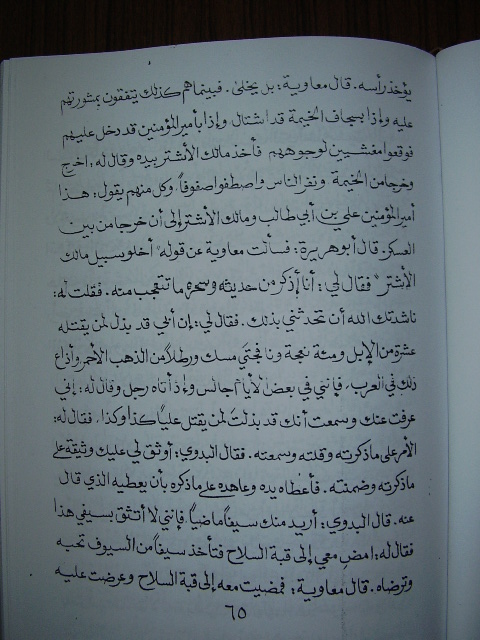 يؤخذ رأسه. قال معاوية: بل يخلى. فبينما هم كذلك يتفقون بمشورتهم
عليه وإذا بجاف الخيمة قد اشتال وإذا بأمير المؤمنين قد دخل عليهم
فوقعوا مغشيين لوجوههم فأخذ مالك الأشتر بيده وقال له: اخرج
وخرجا من الخيمة ونفر الناس واصطفوا صفوفاً، وكل منهم يقول: هذا
أمير المؤمنين علي بن أبي طالب ومالك الأشتر إلى أن خرجا من بين
العسكر. قال أبو هريرة: فسألت معاوية عن قوله "أخلو سبيل مالك
الأشتر" فقال لي: أنا أذكر من حديثه وسحره ما تتعجب منه. فقلت له:
ناشدتك الله أن تحدثني بذلك. فقال لي: إن أخي قد بذل لمن يقتله
عشرة من الإبل ومئة نعجة ونافجتي مسك ورطلاً من الذهب الأحمر وأذاع
ذلك في العرب، فإنني في بعض الأيام جالس وإذ أتاه رجل وقال له: إني
عرفت عنك وسمعت أنك قد بذلت لمن يقتل علياً كذا وكذا، فقال له:
الأمر على ما ذكرته وقلته وسمعته. فقال البدوي: أوثق لي عليك وثيقة على
ما ذكرته وضمنته. فأعطاه يده وعاهده على ما ذكره بأن يعطيه الذي قال
عنه. قال البدوي: أريد منك سيفاً ماضياً فإنني لا أثق بسيفي هذا
فقال له: امض معي إلى قبة السلاح فتأخذ سيفاً من السيوف تحبه
وترضاه. قال معاوية: فمضيت معه إلى قبة السلاح وعرضت عليه
٦٥